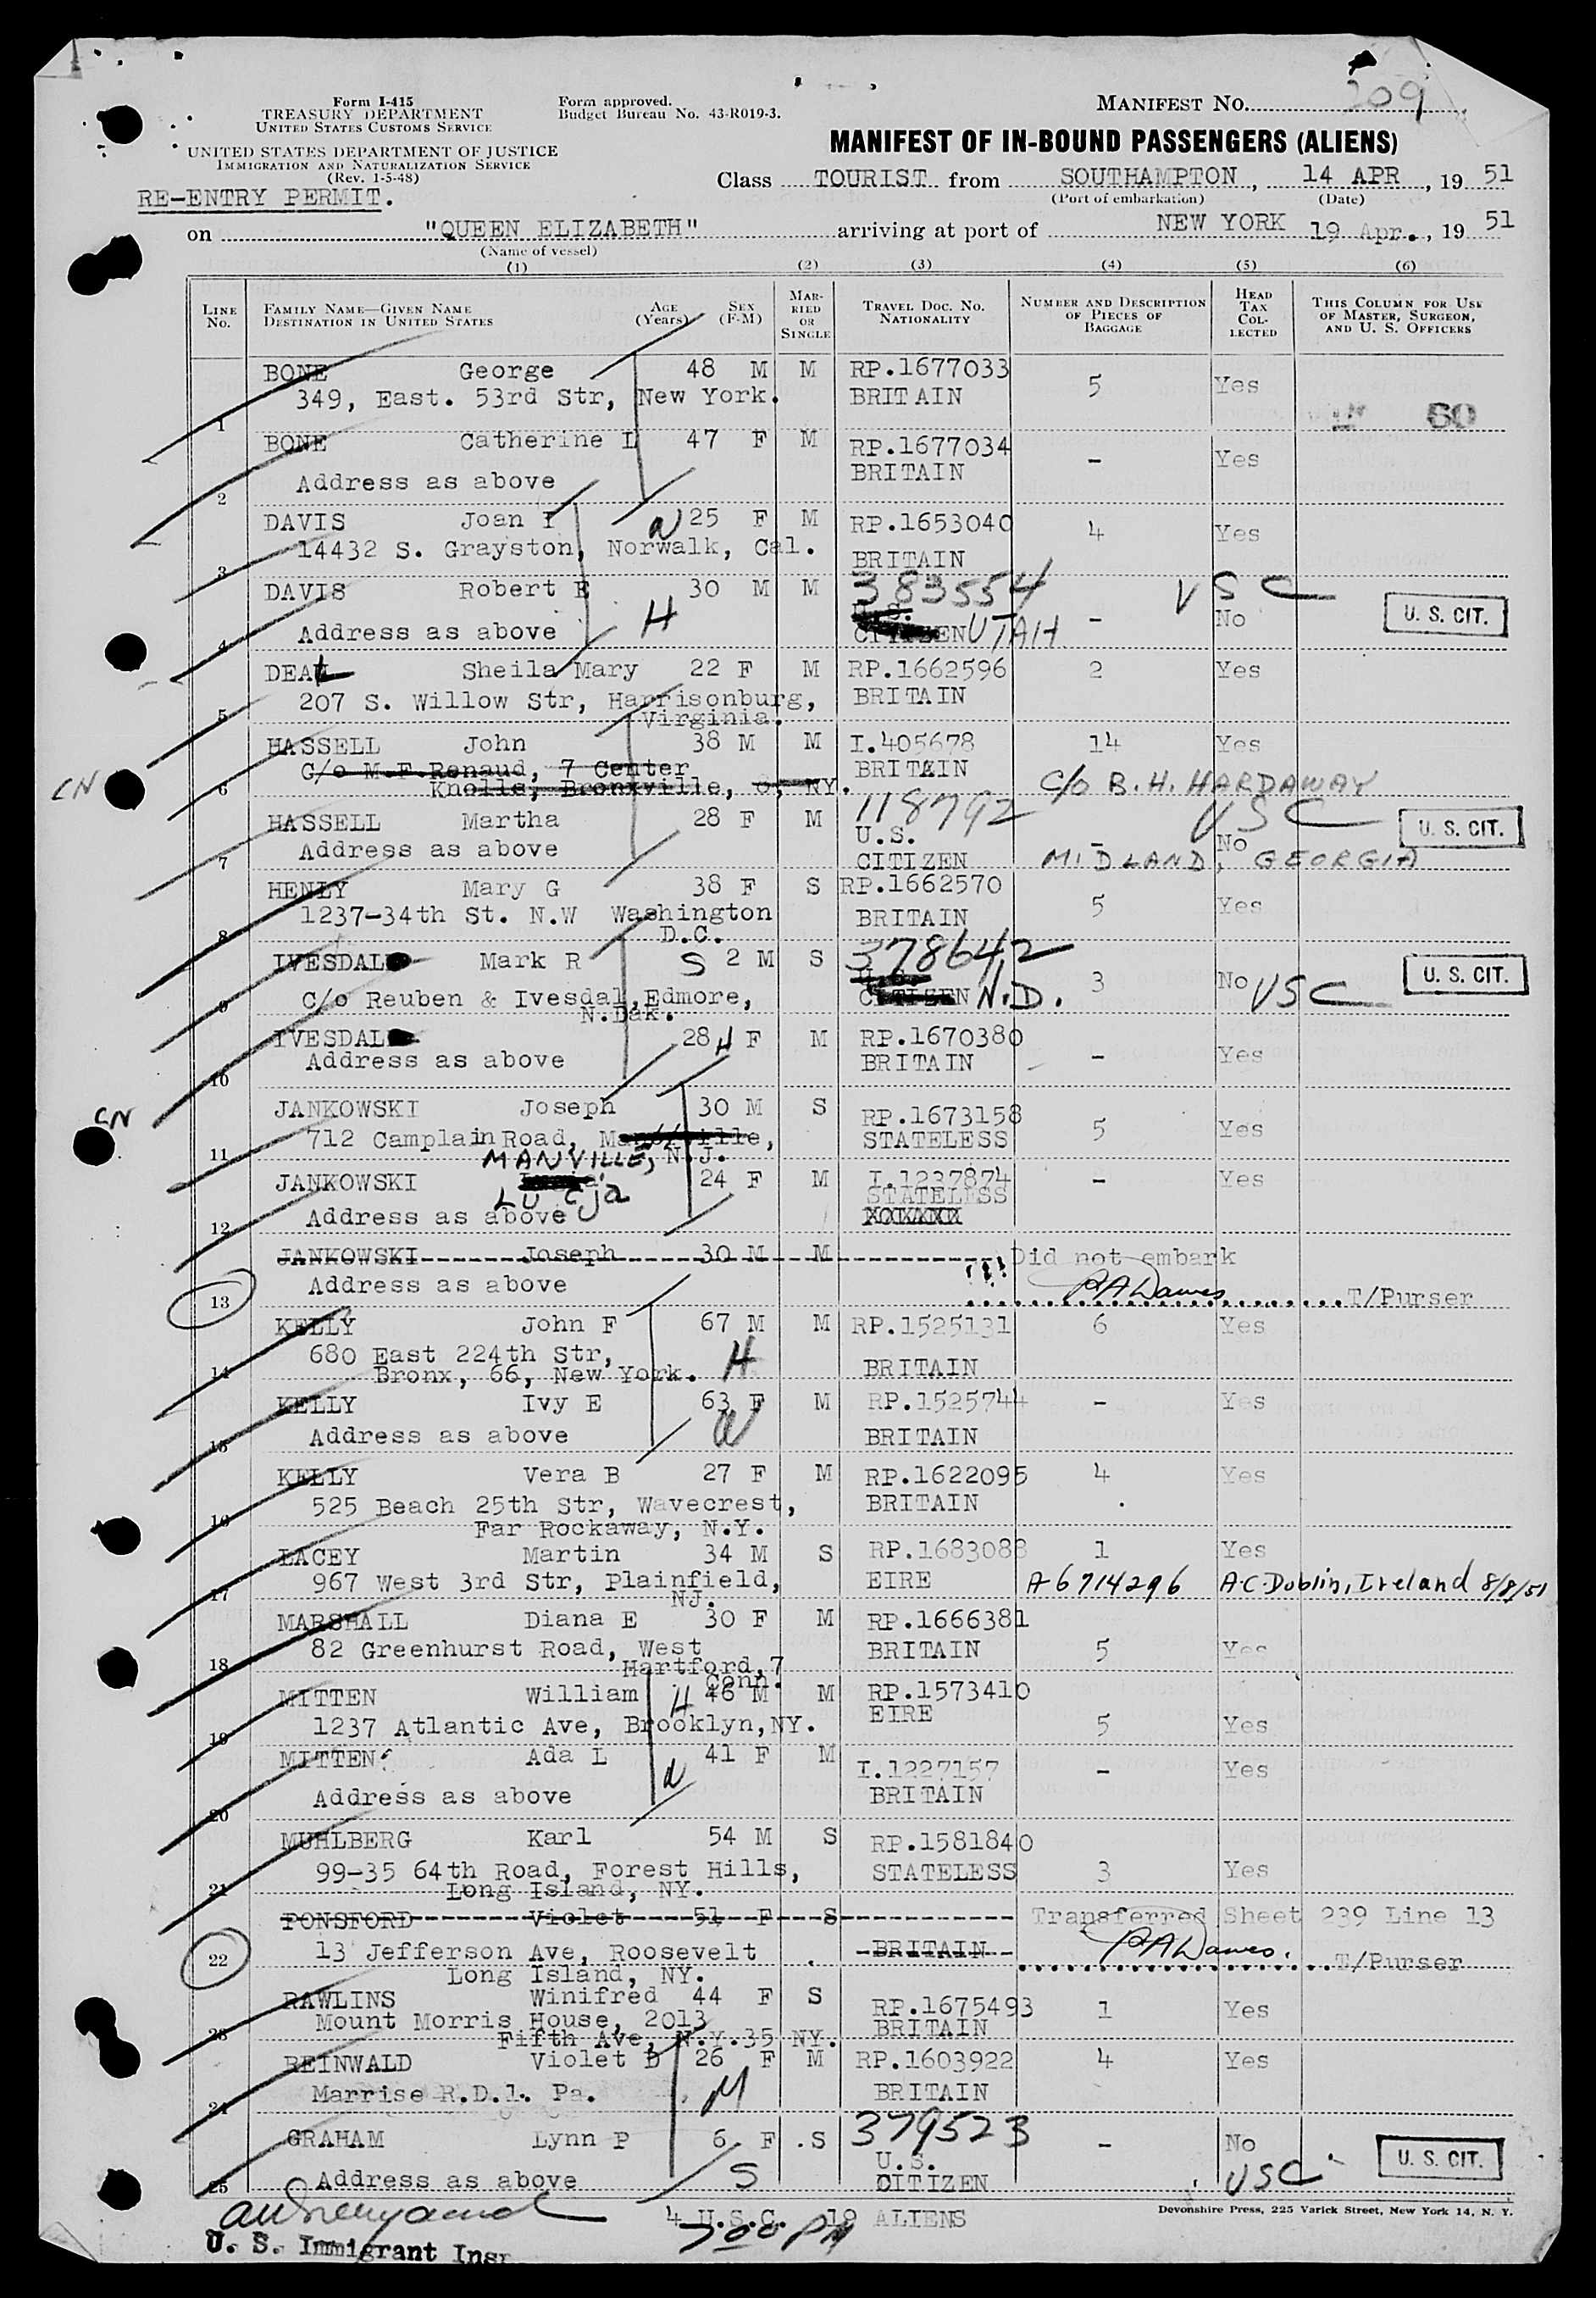 209
Form I-415
TREASURY DEPARTMENT
UNITED STATES CUSTOMS SERVICE
Form approved.
Budget Bureau No. 43-R019-3.
MANIFEST NO.
UNITED STATES DEPARTMENT OF JUSTICE
IMMIGRATION AND NATURALIZATION SERVICE
(Rev. 1-5-48)
MANIFEST OF IN-BOUND PASSENGERS (ALIENS)
RE-ENTRY PERMIT.
Class TOURIST from SOUTHAMPTON, 14 APR, 19 51
(Port of embarkation) (Date)
on "QUEEN ELIZABETH" arriving at port of NEW YORK 19 Apr., 19 51
(Name of vessel)
(1) (2) (3) (4) (5) (6)
LINE NO. FAMILY NAME—GIVEN NAME DESTINATION IN UNITED STATES AGE (Years) SEX (F-M) MARRIED OR SINGLE TRAVEL DOC. NO. NATIONALITY NUMBER AND DESCRIPTION OF PIECES OF BAGGAGE HEAD TAX COLLECTED THIS COLUMN FOR USE OF MASTER, SURGEON, AND U. S. OFFICERS
BONE George 48 M M RP.1677033 5 Yes
1 349, East. 53rd Str, New York. BRITAIN
60
BONE Catherine L 47 F M RP.1677034 - Yes
2 Address as above BRITAIN
DAVIS Joan Y 25 F M RP.1653040 4 Yes
3 14432 S. Grayston, Norwalk, Cal. BRITAIN
DAVIS Robert E 30 M M 383554 USC
4 Address as above H UTAH - No U. S. CIT.
DEAL Sheila Mary 22 F M RP.1662596 2 Yes
5 207 S. Willow Str, Harrisonburg, BRITAIN
Virginia.
HASSELL John 38 M M I.405678 14 Yes
CN 6 C/o M.F.Renaud, 7 Center BRITAIN
Knolls, Bronxville, NY. C/o B.H. HARDAWAY
HASSELL Martha 28 F M 118792 USC U. S. CIT.
7 Address as above U.S. CITIZEN - No
MIDLAND, GEORGIA
HENLY Mary G 38 F S RP.1662570 5 Yes
8 1237-34th St. N.W Washington BRITAIN
D.C.
IVESDAL Mark R S 2 M S 378642
9 C/o Reuben & Ivesdal, Edmore, N.D. 3 No USC U. S. CIT.
N.Dak.
IVESDAL 28 H F M RP.1670380 - Yes
10 Address as above BRITAIN
JANKOWSKI Joseph 30 M S RP.1673158 5 Yes
CN 11 712 Camplain Road, STATELESS
MANVILLE, N.J.
JANKOWSKI 24 F M I.1237874 - Yes
Lucja STATELESS
12 Address as above
JANKOWSKI Joseph 30 M M Did not embark
13 Address as above PADawes T/Purser
KELLY John F 67 M M RP.1525131 6 Yes
14 680 East 224th Str, H BRITAIN
Bronx, 66, New York.
KELLY Ivy E 63 F M RP.1525744 - Yes
15 Address as above BRITAIN
KELLY Vera B 27 F M RP.1622095 4 Yes
16 525 Beach 25th Str, Wavecrest, BRITAIN
Far Rockaway, N.Y.
LACEY Martin 34 M S RP.1683088 1 Yes
17 967 West 3rd Str, Plainfield, EIRE A-6714296 A-C-Dublin, Ireland 8/8/51
NJ.
MARSHALL Diana E 30 F M RP.1666381
18 82 Greenhurst Road, West BRITAIN 5 Yes
Hartford, 7
Conn.
MITTEN William H 46 M M RP.1573410
19 1237 Atlantic Ave, Brooklyn, NY. EIRE 5 Yes
MITTEN Ada L 41 F M I.1227157 - Yes
20 Address as above BRITAIN
MUHLBERG Karl 54 M S RP.1581840
21 99-35 64th Road, Forest Hills, STATELESS 3 Yes
Long Island, NY.
PONSFORD Violet 51 F S Transferred Sheet 239 Line 13
22 13 Jefferson Ave, Roosevelt BRITAIN PADawes. T/Purser
Long Island, NY.
RAWLINS Winifred 44 F S RP.1675493 1 Yes
23 Mount Morris House, 2013 BRITAIN
Fifth Ave, N.Y.35 NY.
REINWALD Violet D 26 F M RP.1603922 4 Yes
24 Marrise R.D.1. Pa. M BRITAIN
GRAHAM Lynn P 6 F S 379523 - No
25 Address as above S U.S. CITIZEN USC U. S. CIT.
4 U.S.C. 19 ALIENS
7:00 PM
Devonshire Press, 225 Varick Street, New York 14, N. Y.
U. S. Immigrant Insp